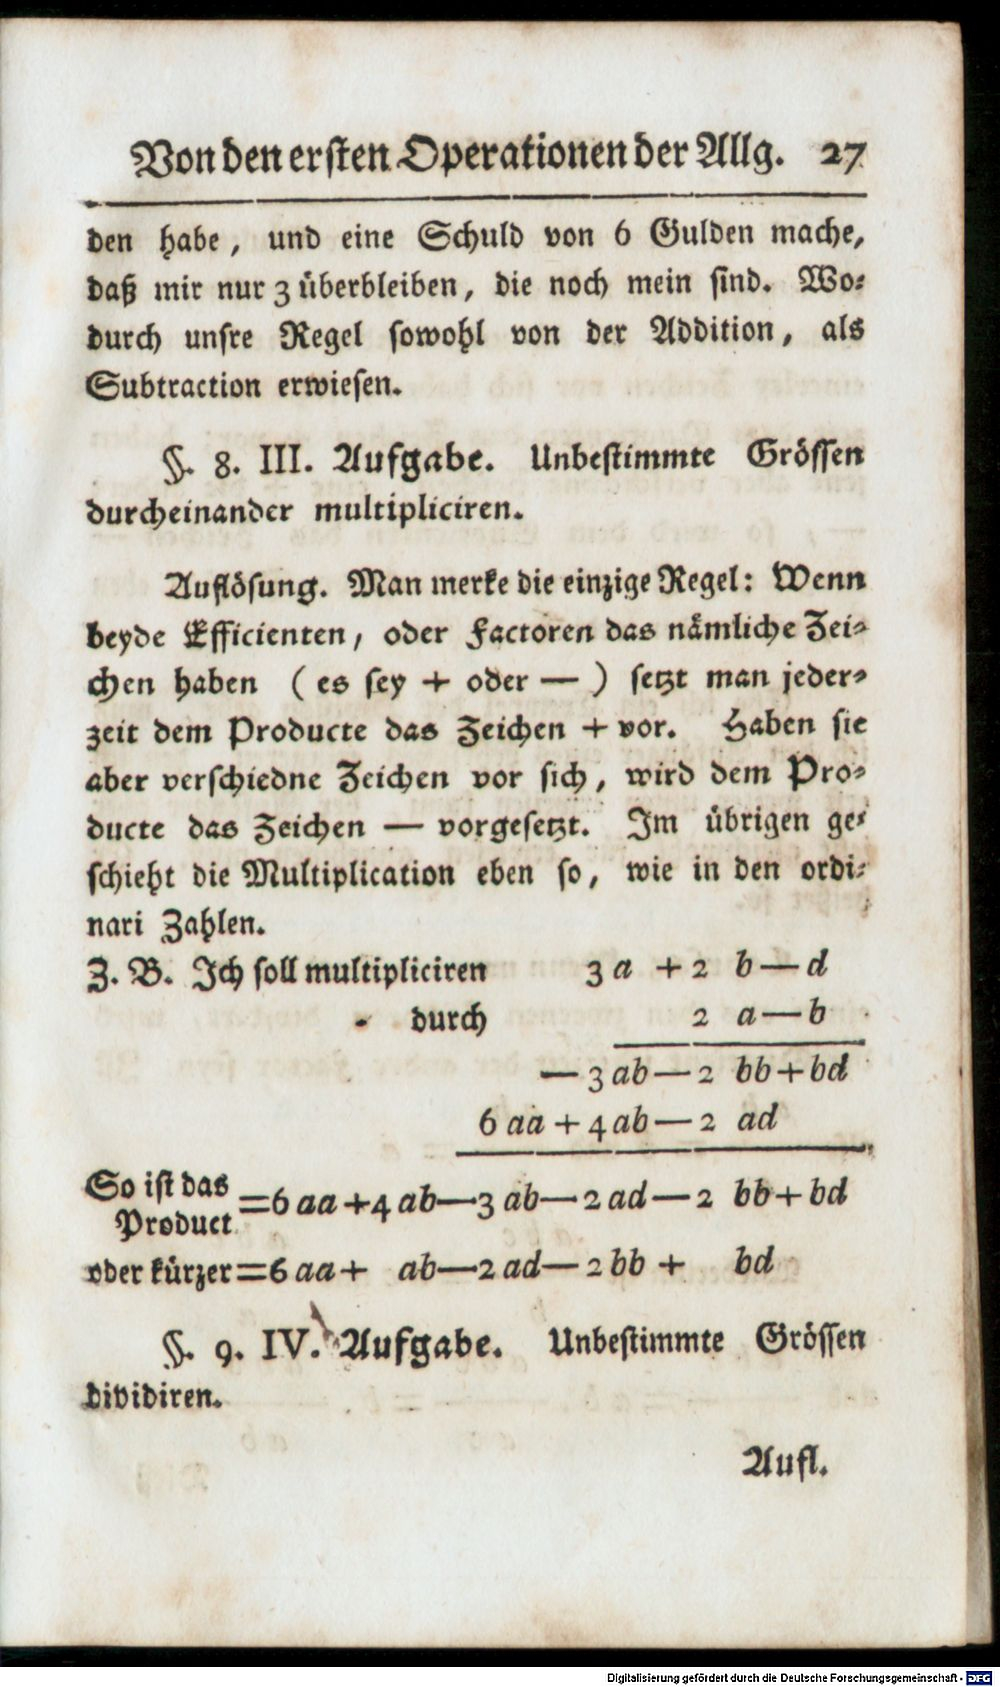 Von den ersten Operationen der Allg. 27
den habe, und eine Schuld von 6 Gulden mache,
daß mir nur 3 überbleiben, die noch mein sind. Wo-
durch unsre Regel sowohl von der Addition, als
Subtraction erwiesen.
§. 8. III. Aufgabe. Unbestimmte Grössen
durcheinander multipliciren.
Auflösung. Man merke die einzige Regel: Wenn
beyde Efficienten, oder Factoren das nämliche Zei-
chen haben (es sey + oder — ) setzt man jeder-
zeit dem Producte das Zeichen + vor. Haben sie
aber verschiedne Zeichen vor sich, wird dem Pro-
ducte das Zeichen — vorgesetzt. Im übrigen ge-
schieht die Multiplication eben so, wie in den ordi-
nari Zahlen.
Z. B. Ich soll multipliciren 3 a + 2 b — d
- durch 2 a — b
— 3 ab — 2 bb + bd
6 aa + 4 ab — 2 ad
So ist das
Product = 6 aa + 4 ab — 3 ab — 2 ad — 2 bb + bd
oder kürzer = 6 aa + ab — 2 ad — 2 bb + bd
§. 9. IV. Aufgabe. Unbestimmte Grössen
dividiren.
Aufl.
Digitalisierung gefördert durch die Deutsche Forschungsgemeinschaft - DFG